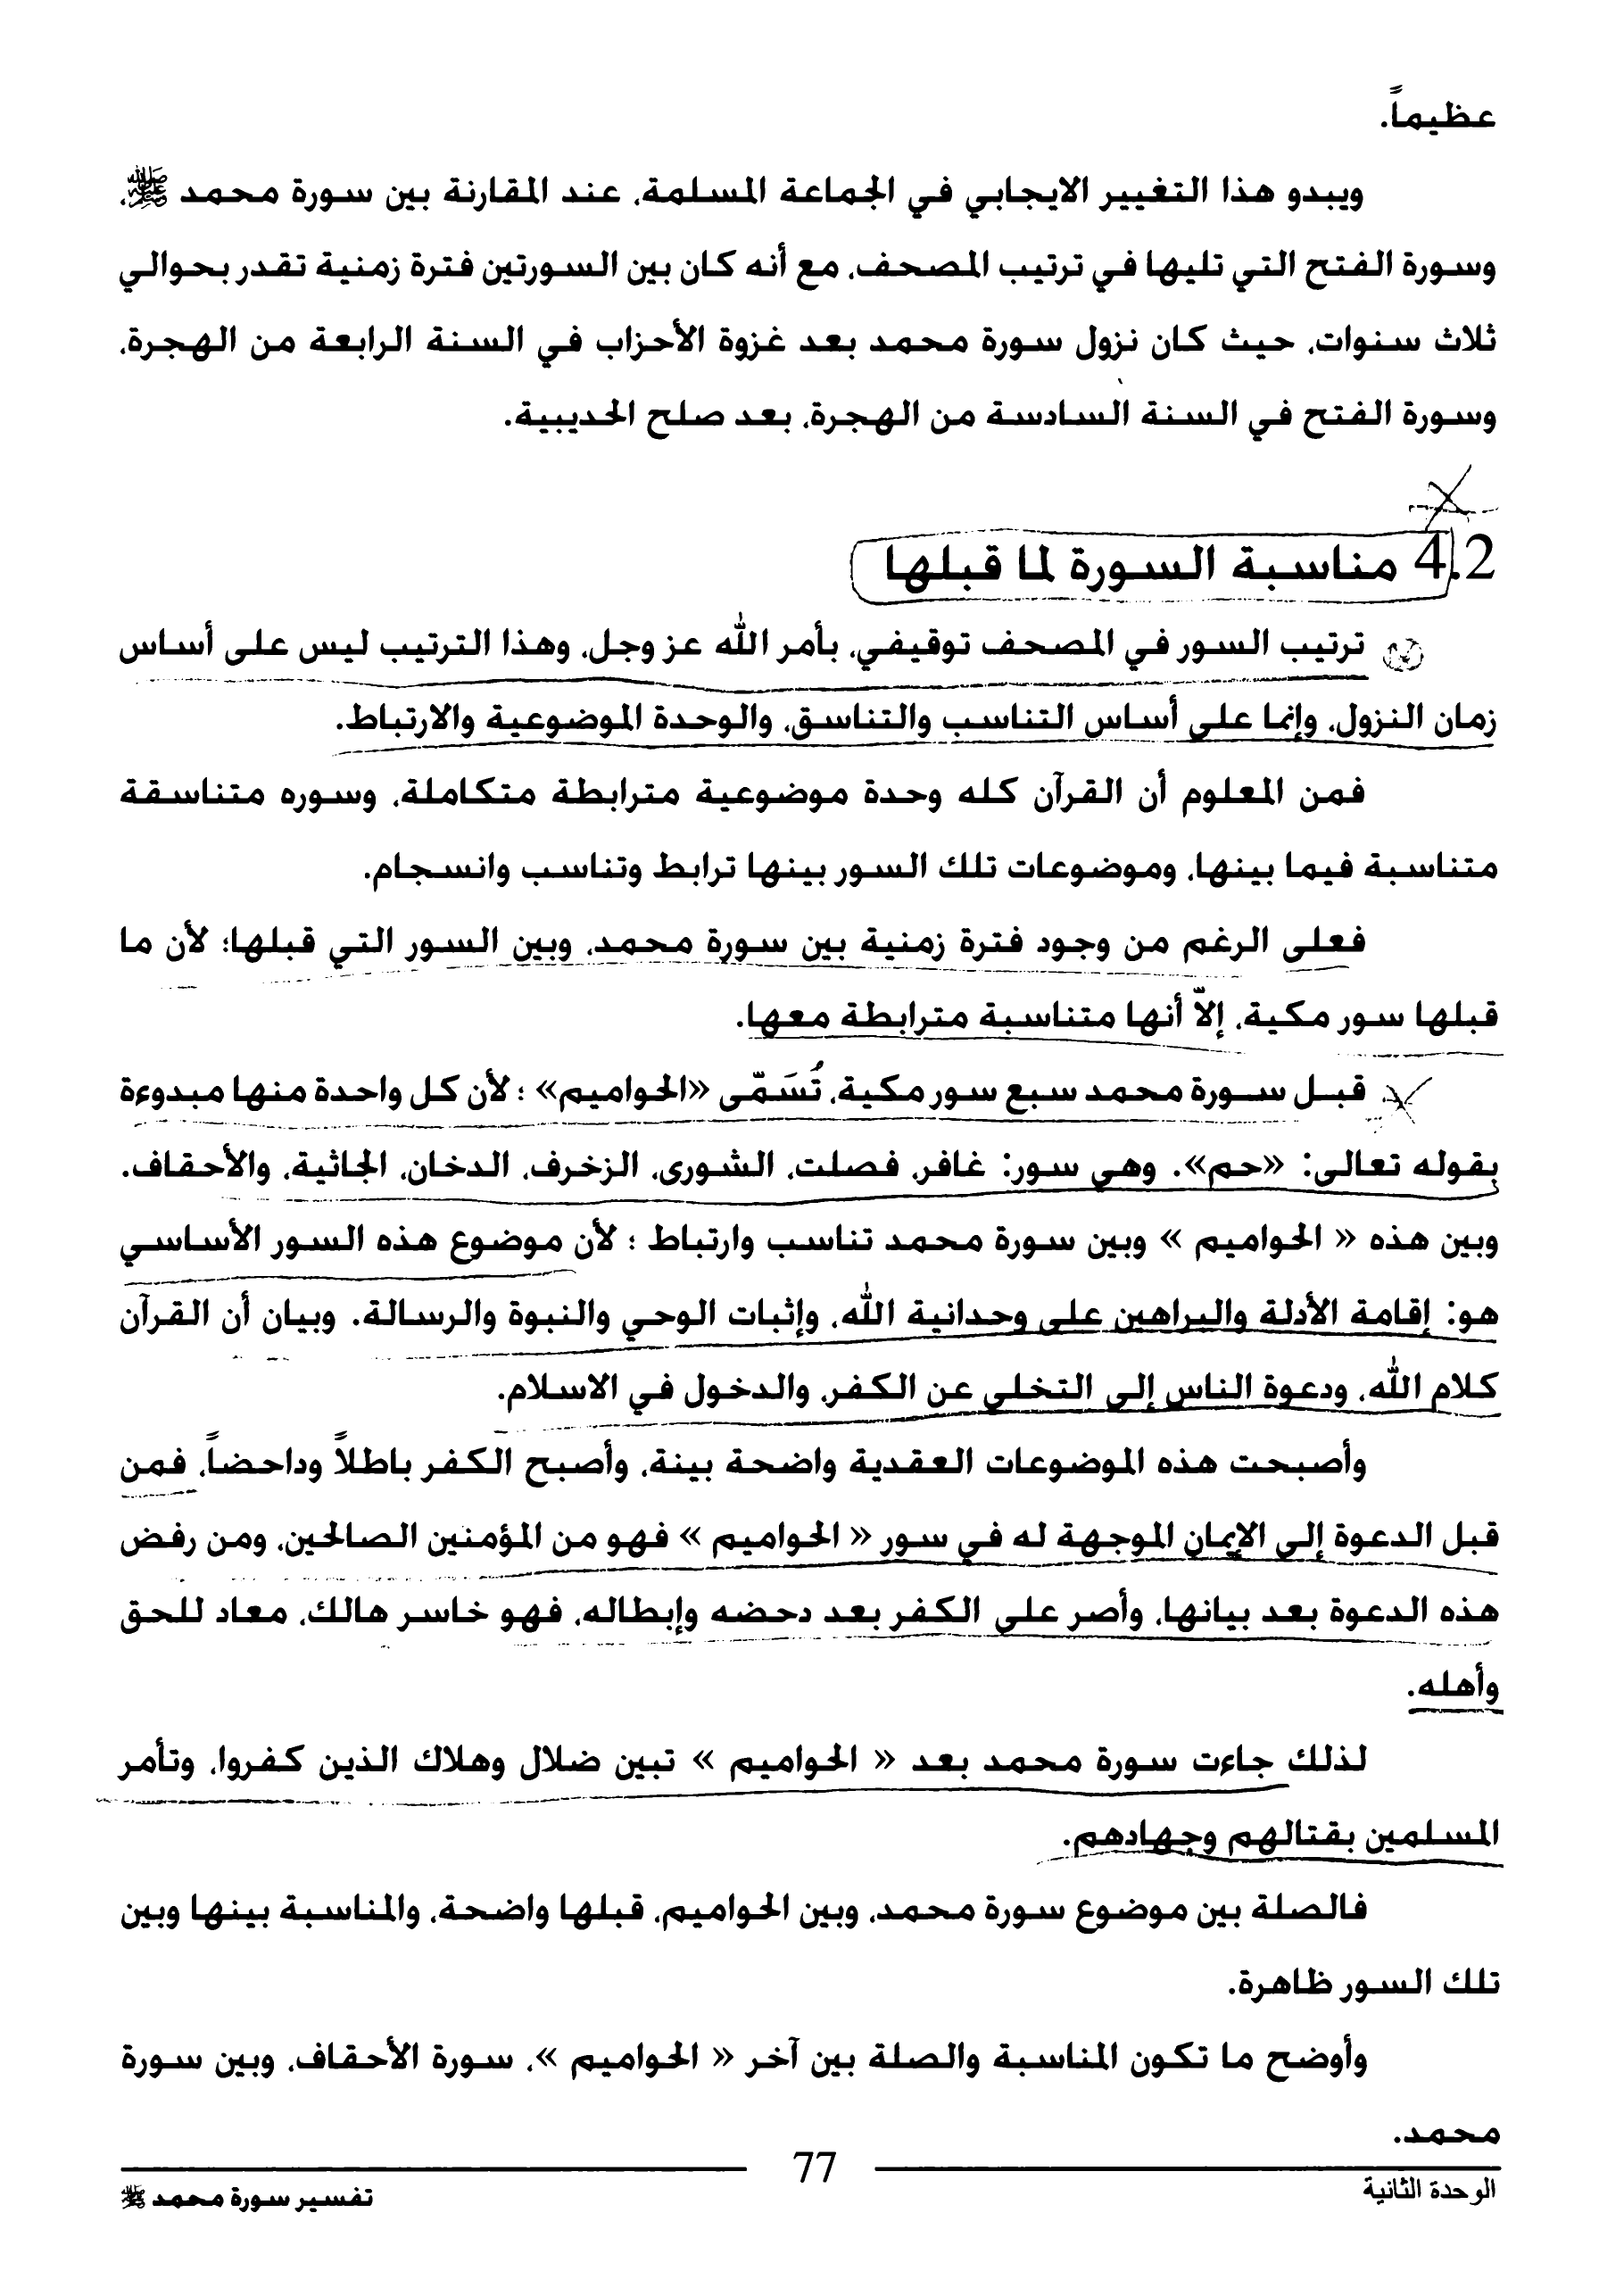 عظيماً.
ويبدو هذا التغيير الايجابي في الجماعة المسلمة، عند المقارنة بين سورة محمد ﷺ،
وسورة الفتح التي تليها في ترتيب المصحف، مع أنه كان بين السورتين فترة زمنية تقدر بحوالي
ثلاث سنوات، حيث كان نزول سورة محمد بعد غزوة الأحزاب في السنة الرابعة من الهجرة،
وسورة الفتح في السنة السادسة من الهجرة، بعد صلح الحديبية.
4.2 مناسبة السورة لما قبلها
ترتيب السور في المصحف توقيفي، بأمر الله عز وجل، وهذا الترتيب ليس على أساس
زمان النزول، وإنما على أساس التناسب والتناسق، والوحدة الموضوعية والارتباط.
فمن المعلوم أن القرآن كله وحدة موضوعية مترابطة متكاملة، وسوره متناسقة
متناسبة فيما بينها، وموضوعات تلك السور بينها ترابط وتناسب وانسجام.
فعلى الرغم من وجود فترة زمنية بين سورة محمد، وبين السور التي قبلها؛ لأن ما
قبلها سور مكية، إلاّ أنها متناسبة مترابطة معها.
قبل سورة محمد سبع سور مكية، تُسَمّى «الحواميم» ؛ لأن كل واحدة منها مبدوءة
بقوله تعالى: «حم». وهي سور: غافر، فصلت، الشورى، الزخرف، الدخان، الجاثية، والأحقاف.
وبين هذه « الحواميم » وبين سورة محمد تناسب وارتباط ؛ لأن موضوع هذه السور الأساسي
هو: إقامة الأدلة والبراهين على وحدانية الله، وإثبات الوحي والنبوة والرسالة. وبيان أن القرآن
كلام الله، ودعوة الناس إلى التخلي عن الكفر، والدخول في الاسلام.
وأصبحت هذه الموضوعات العقدية واضحة بينة، وأصبح الكفر باطلاً وداحضاً، فمن
قبل الدعوة إلى الإيمان الموجهة له في سور « الحواميم » فهو من المؤمنين الصالحين، ومن رفض
هذه الدعوة بعد بيانها، وأصر على الكفر بعد دحضه وإبطاله، فهو خاسر هالك، معاد للحق
وأهله.
لذلك جاءت سورة محمد بعد « الحواميم » تبين ضلال وهلاك الذين كفروا، وتأمر
المسلمين بقتالهم وجهادهم.
فالصلة بين موضوع سورة محمد، وبين الحواميم، قبلها واضحة، والمناسبة بينها وبين
تلك السور ظاهرة.
وأوضح ما تكون المناسبة والصلة بين آخر « الحواميم »، سورة الأحقاف، وبين سورة
محمد.
77
الوحدة الثانية
تفسير سورة محمد ﷺ